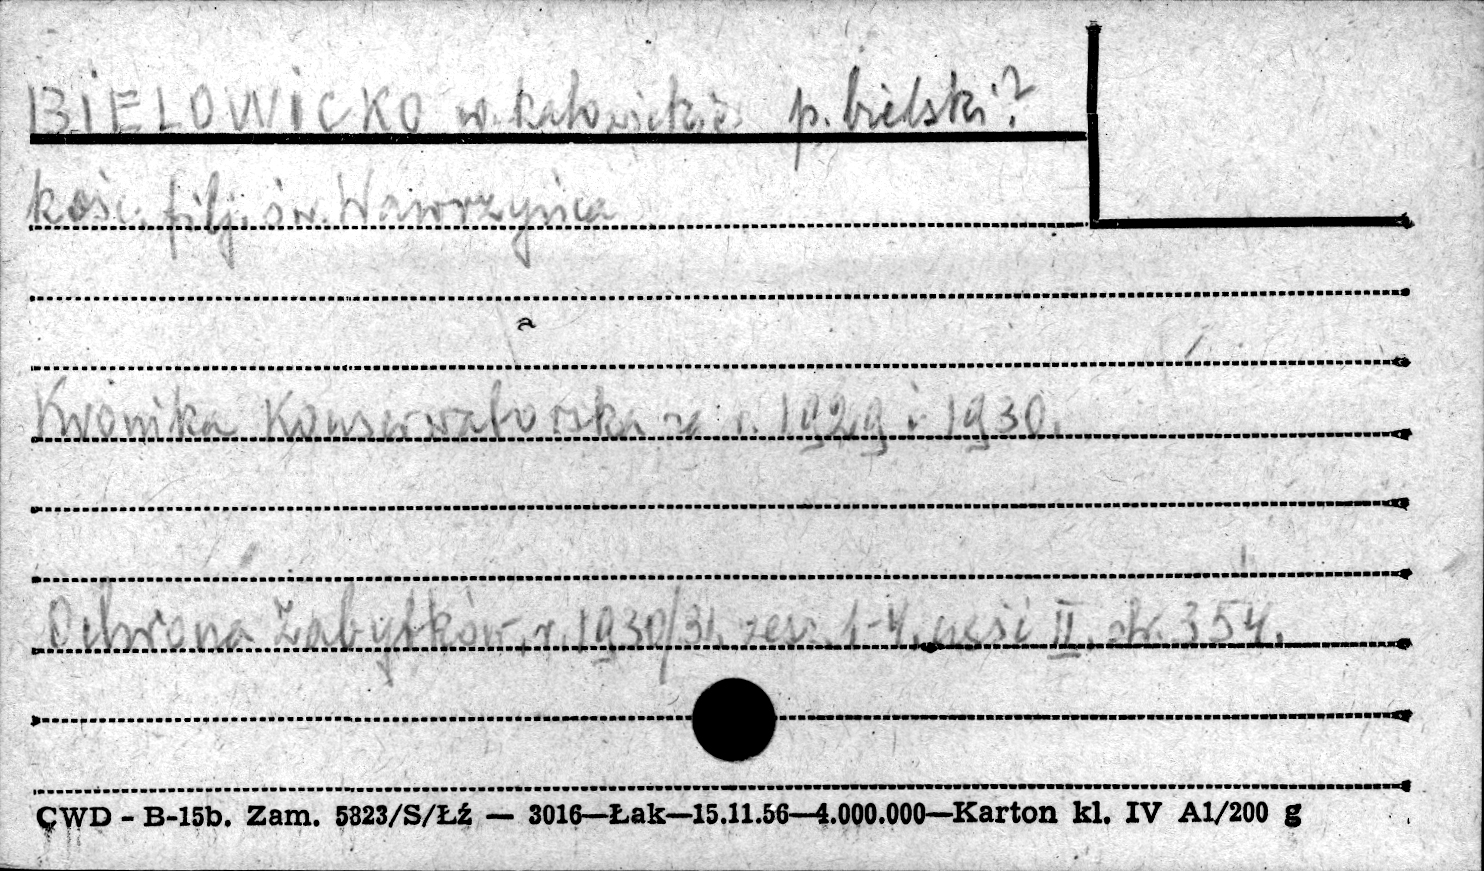 BIELOWICKO w. katowickie p. bielski?
kośc. filj. św. Wawrzyńca
Kronika Konserwatorska za r. 1929 i 1930.
Ochrona Zabytków, r. 1930/31. zesz. 1-4, część II, str. 354.
CWD - B-15b. Zam. 5823/S/Łź — 3016—Łak—15.11.56—4.000.000—Karton kl. IV A1/200 g